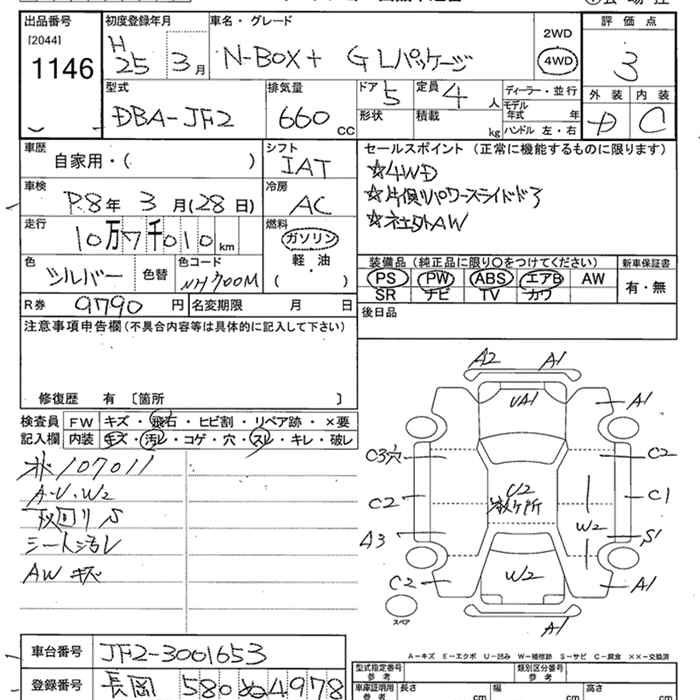 出品番号
[2044]
1146
初度登録年月
H
25 3 月
車名・グレード
N-BOX+ G Lパッケージ
2WD
4WD
評価点
3
外装 内装
D C
型式
DBA-JF2
排気量
660 CC
ドア 5
定員 4 人
形状
積載 kg
ディーラー・並行
モデル
年式 年
ハンドル 左・右
車歴
自家用・( )
シフト
IAT
セールスポイント (正常に機能するものに限ります)
☆4WD
☆片側パワースライドドア
☆社外AW
車検
R8年 3 月(28日)
冷房
AC
走行
10万7千010 km
燃料
ガソリン
軽・油
( )
色
シルバー
色替
色コード
NH700M
装備品(純正品に限り○をつけてください)
PS PW ABS エアB AW
SR ナビ TV カワ
新車保証書
有・無
R券 9790 円
名変期限 月 日
後日品
注意事項申告欄(不具合内容等は具体的に記入して下さい)
修復歴 有 〔箇所 〕
検査員
記入欄
FW キズ・飛石・ヒビ割・リペア跡・×要
内装 キズ・汚レ・コゲ・穴・スレ・キレ・破レ
107011
A・U・W2
下回りS
シート汚レ
AW キズ
A2 A1
UA1
A1
C3穴
C2
C2
U2
C1
W2
A3
S1
C2
W2
A1
スペア
A1
A-キズ E-エクボ U-凹み W-補修跡 S-サビ C-腐食 ××-交換済
車台番号 JF2-3001653
登録番号 長岡 580 ぬ4978
型式指定番号
参考
類別区分番号
参考
車庫証明用
参考
長さ cm
幅 cm
高さ cm